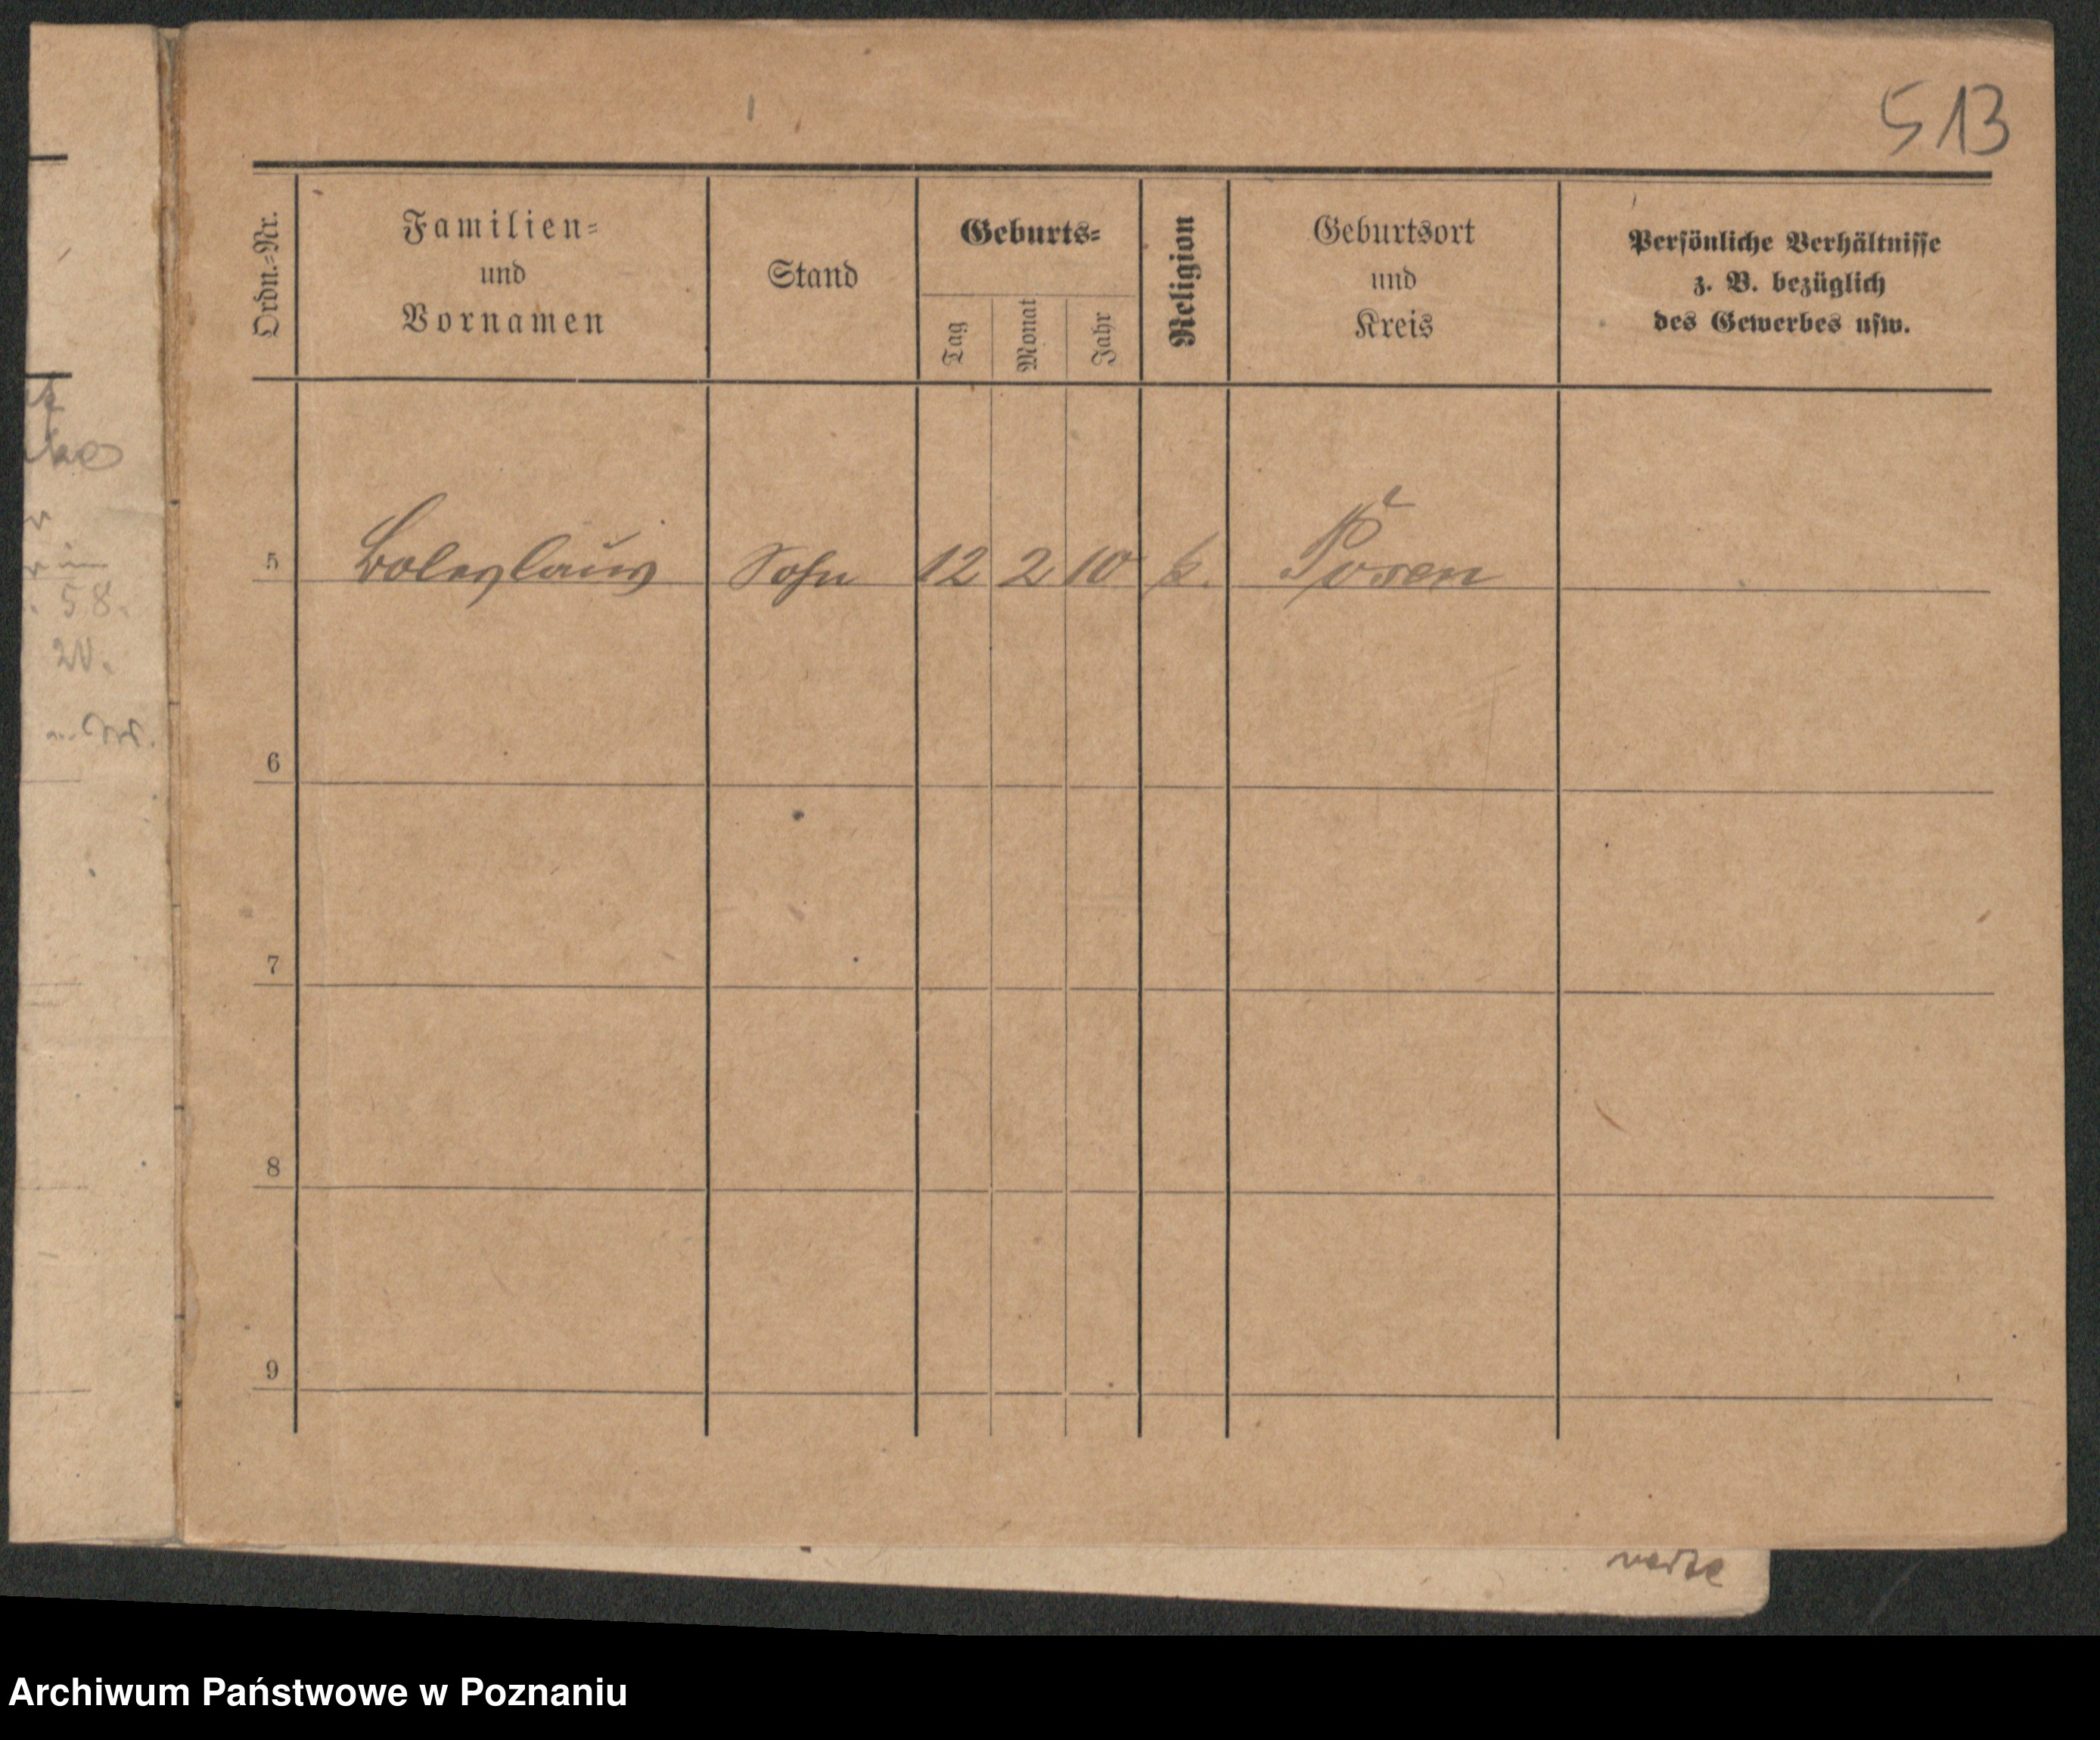 513
Ordn.=Nr.
Familien=
und
Vornamen
Stand
Geburts=
Tag
Monat
Jahr
Religion
Geburtsort
und
Kreis
Persönliche Verhältnisse
z. B. bezüglich
des Gewerbes usw.
5 Boleslaus Sohn 12 2 10 k. Posen
6
7
8
9
58.
20.
Archiwum Państwowe w Poznaniu